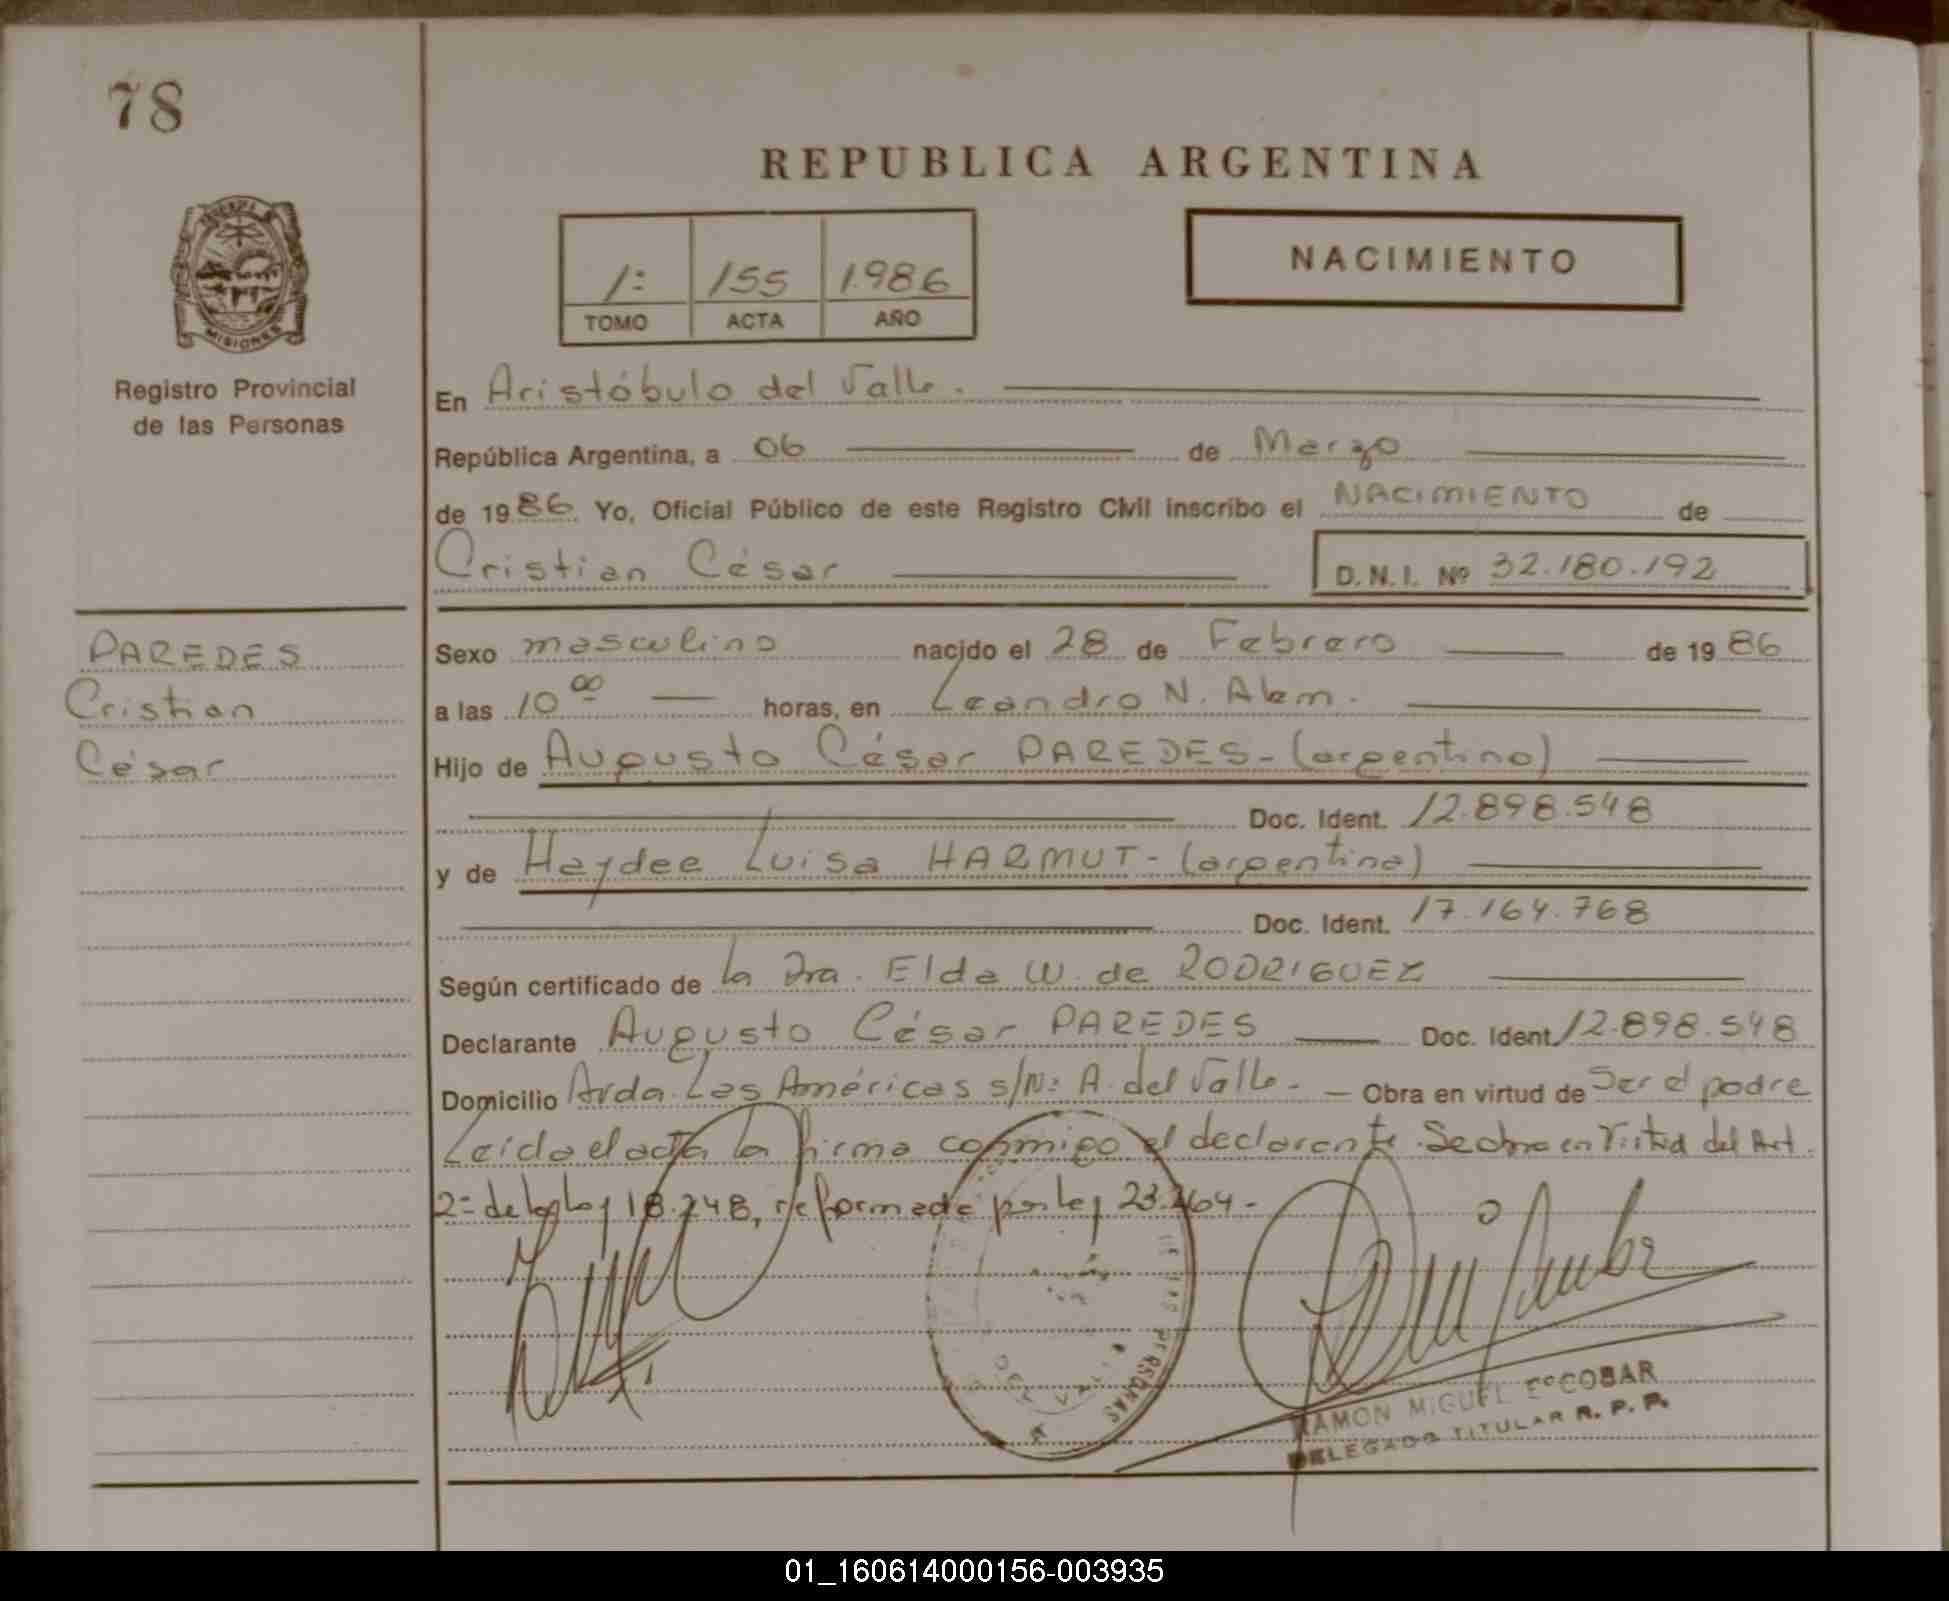 78
REPUBLICA ARGENTINA
1: 155 1.986
TOMO ACTA AÑO
NACIMIENTO
MISIONES
Registro Provincial
de las Personas
En Aristóbulo del Valle.
República Argentina, a 06 de Marzo
de 1986 Yo, Oficial Público de este Registro Civil inscribo el NACIMIENTO de
Cristian César D.N.I. Nº 32.180.192
PAREDES
Cristian
César
Sexo masculino nacido el 28 de Febrero de 1986
a las 10 00 horas, en Leandro N. Alem.
Hijo de Augusto César PAREDES-(argentino)
Doc. Ident. 12.898.548
y de Haydee Luisa HARMUT-(argentina)
Doc. Ident. 17.164.768
Según certificado de la Dra. Elda W. de RODRIGUEZ
Declarante Augusto César PAREDES Doc. Ident. 12.898.548
Domicilio Avda. Las Américas s/Nº A. del Valle.- Obra en virtud de Ser el padre
Leída el acta la firma conmigo el declarante. Se obra en Virtud del Art.
2= de la Ley 18.248, reformada por Ley 23.264.-
DE LAS PERSONAS
DEL VALLE
RAMON MIGUEL ESCOBAR
DELEGADO TITULAR R. P. P.
01_160614000156-003935